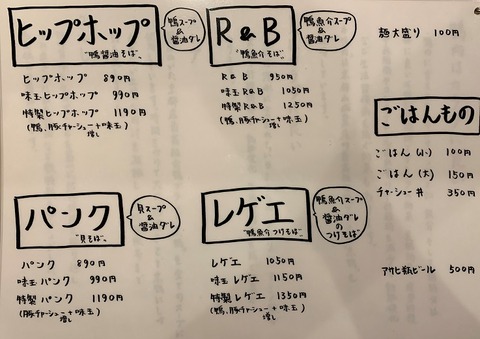 ヒップホップ
"鴨醤油そば"
鴨スープ
&
醤油ダレ
ヒップホップ 890円
味玉ヒップホップ 990円
特製ヒップホップ 1190円
(鴨、豚チャーシュー+味玉)
増し
R&B
"鴨魚介そば"
鴨魚介スープ
&
醤油ダレ
R&B 950円
味玉R&B 1050円
特製R&B 1250円
(鴨、豚チャーシュー+味玉)
増し
パンク
"貝そば"
貝スープ
&
醤油ダレ
パンク 890円
味玉パンク 990円
特製パンク 1190円
(豚チャーシュー+味玉)
増し
レゲエ
"鴨魚介つけそば"
鴨魚介スープ
&
醤油ダレ
の
つけそば
レゲエ 1050円
味玉レゲエ 1150円
特製レゲエ 1350円
(鴨、豚チャーシュー+味玉)
増し
麺大盛り 100円
ごはんもの
ごはん(小) 100円
ごはん(大) 150円
チャーシュー丼 350円
アサヒ瓶ビール 500円